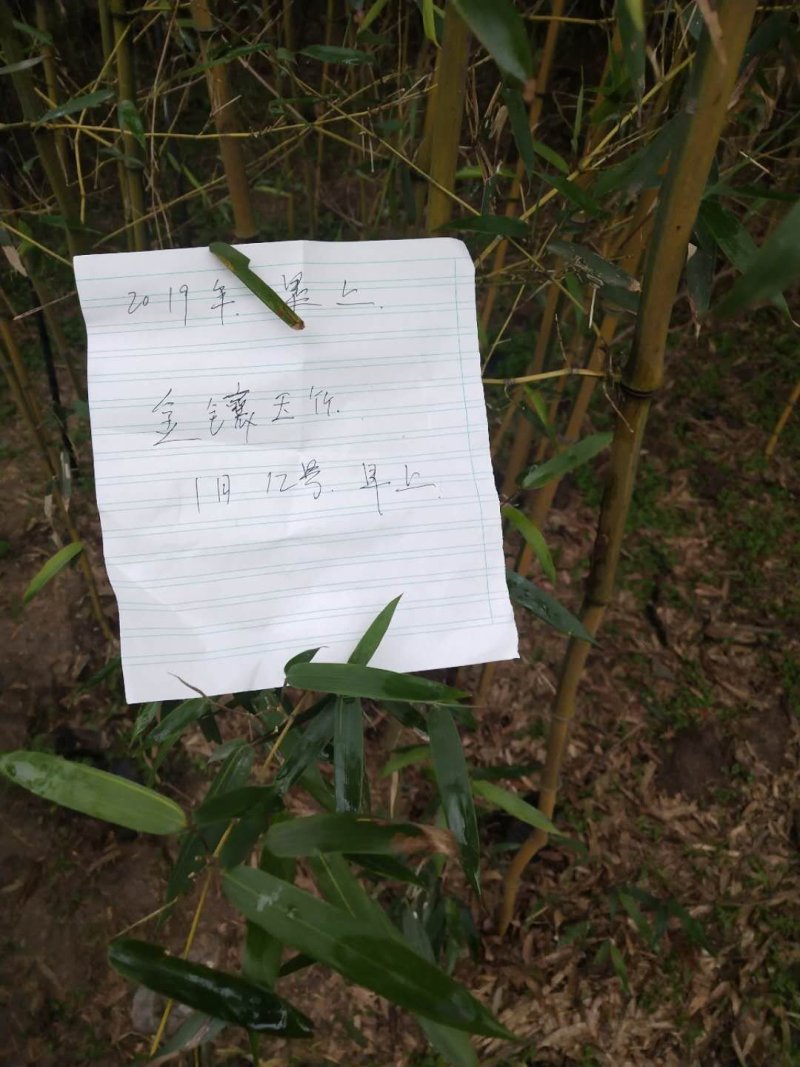 2019年.墨上.
金镶玉竹.
1月12号.早上.